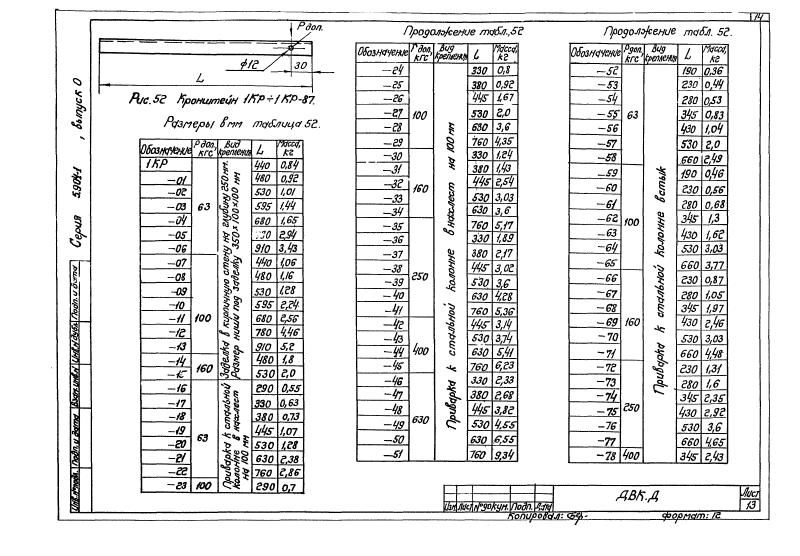 14
Р доп.
ф12
30
L
Рис.52 Кронштейн 1КР÷1КР-87.
Размеры в мм таблица 52.
Обозначение Р доп, кгс Вид крепления L Масса, кг
1КР 440 0,84
-01 480 0,92
-02 530 1,01
-03 63 595 1,44
-04 680 1,65
-05 2,94
-06 910 3,43
-07 440 1,06
-08 480 1,16
-09 530 1,28
-10 595 2,24
-11 100 680 2,56
-12 780 4,46
-13 910 5,2
-14 160 480 1,8
-15 530 2,0
Заделка в кирпичную стену на глубину 250мм.
Размер ниши под заделку 350×100×100мм
-16 290 0,55
-17 330 0,63
-18 380 0,73
-19 63 445 1,07
-20 530 1,28
-21 630 2,38
-22 760 2,86
-23 100 290 0,7
Приварка к стальной
колонне в нахлест
на 100 мм
Продолжение табл.52
Обозначение Р доп, кгс Вид крепления L Масса, кг
-24 330 0,8
-25 380 0,92
-26 445 1,67
-27 100 530 2,0
-28 630 3,6
-29 760 4,35
-30 330 1,24
-31 380 1,43
-32 160 445 2,54
-33 530 3,03
-34 630 3,6
-35 760 5,17
-36 330 1,89
-37 380 2,17
-38 250 445 3,02
-39 530 3,6
-40 630 4,28
-41 760 5,36
-42 445 3,14
-43 400 530 3,74
-44 630 5,41
-45 760 6,23
-46 330 2,33
-47 380 2,68
-48 630 445 3,82
-49 530 4,55
-50 630 6,55
-51 760 9,34
Приварка к стальной колонне в нахлест на 100 мм
Продолжение табл. 52.
Обозначение Р доп, кгс Вид крепления L Масса, кг
-52 190 0,36
-53 230 0,44
-54 280 0,53
-55 63 345 0,83
-56 430 1,04
-57 530 2,0
-58 660 2,49
-59 190 0,46
-60 230 0,56
-61 280 0,68
-62 100 345 1,3
-63 430 1,62
-64 530 3,03
-65 660 3,77
-66 230 0,87
-67 280 1,05
-68 345 1,97
-69 160 430 2,46
-70 530 3,03
-71 660 4,48
-72 230 1,31
-73 280 1,6
-74 345 2,35
-75 250 430 2,92
-76 530 3,6
-77 660 4,65
-78 400 345 2,43
Приварка к стальной колонне встык
Серия 5.904-1 , выпуск 0
Подп. и дата
Подп. и дата
ДВК.Д
Лист
13
Изм. Лист № докум. Подп. Дата
Копировал:
Формат: 12